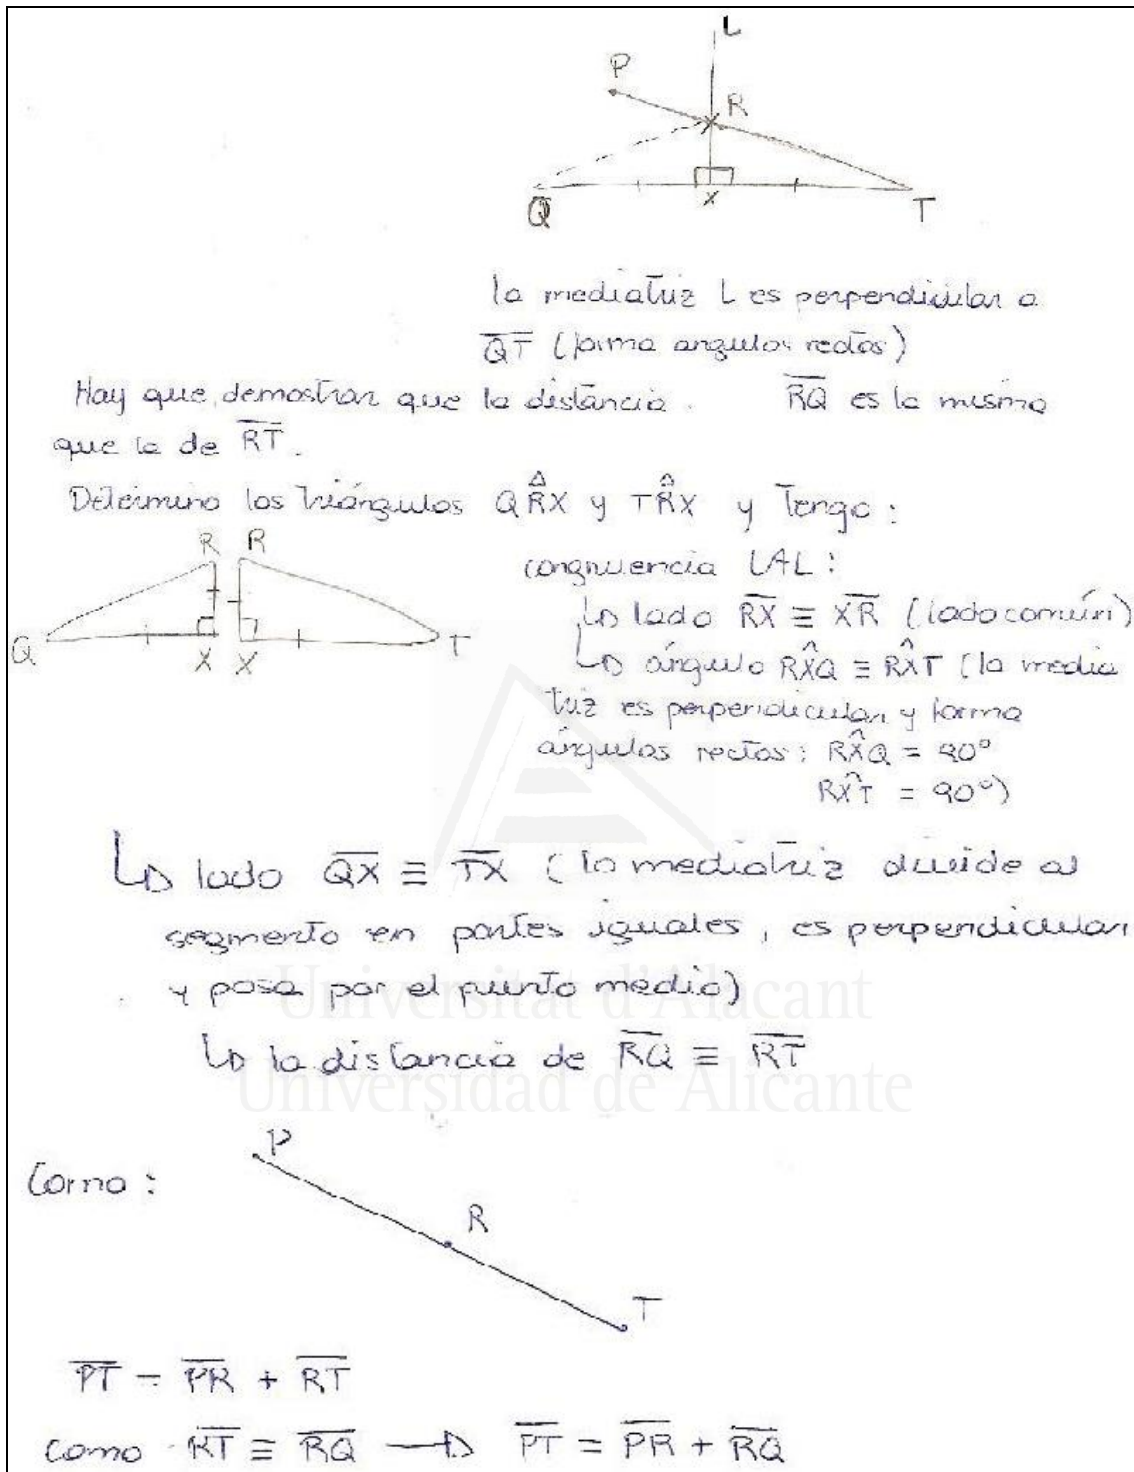 L
P
R
Q
X
T
la mediatriz L es perpendicular a
$\overline{QT}$ (forma angulos rectos)
Hay que demostrar que la distáncia. $\overline{RQ}$ es la misma
que la de $\overline{RT}$.
Determino los triángulos Q$\overset{\Delta}{R}$X y T$\overset{\Delta}{R}$X y Tengo:
R R
Q X X T
congruencia LAL:
↳ lado $\overline{RX}$ ≡ $\overline{XR}$ (lado común)
↳ ángulo R$\hat{X}$Q ≡ R$\hat{X}$T (la media
triz es perpendicular y forma
ángulos rectos: R$\hat{X}$Q = 90°
R$\hat{X}$T = 90°)
↳ lado $\overline{QX}$ ≡ $\overline{TX}$ (la mediatriz divide al
segmento en partes iguales, es perpendicular
y pasa por el punto medio)
↳ la distancia de $\overline{RQ}$ ≡ $\overline{RT}$
Universitat d'Alacant
Universidad de Alicante
Como:
P
R
T
$\overline{PT}$ = $\overline{PR}$ + $\overline{RT}$
como $\overline{RT}$ ≡ $\overline{RQ}$ → $\overline{PT}$ = $\overline{PR}$ + $\overline{RQ}$